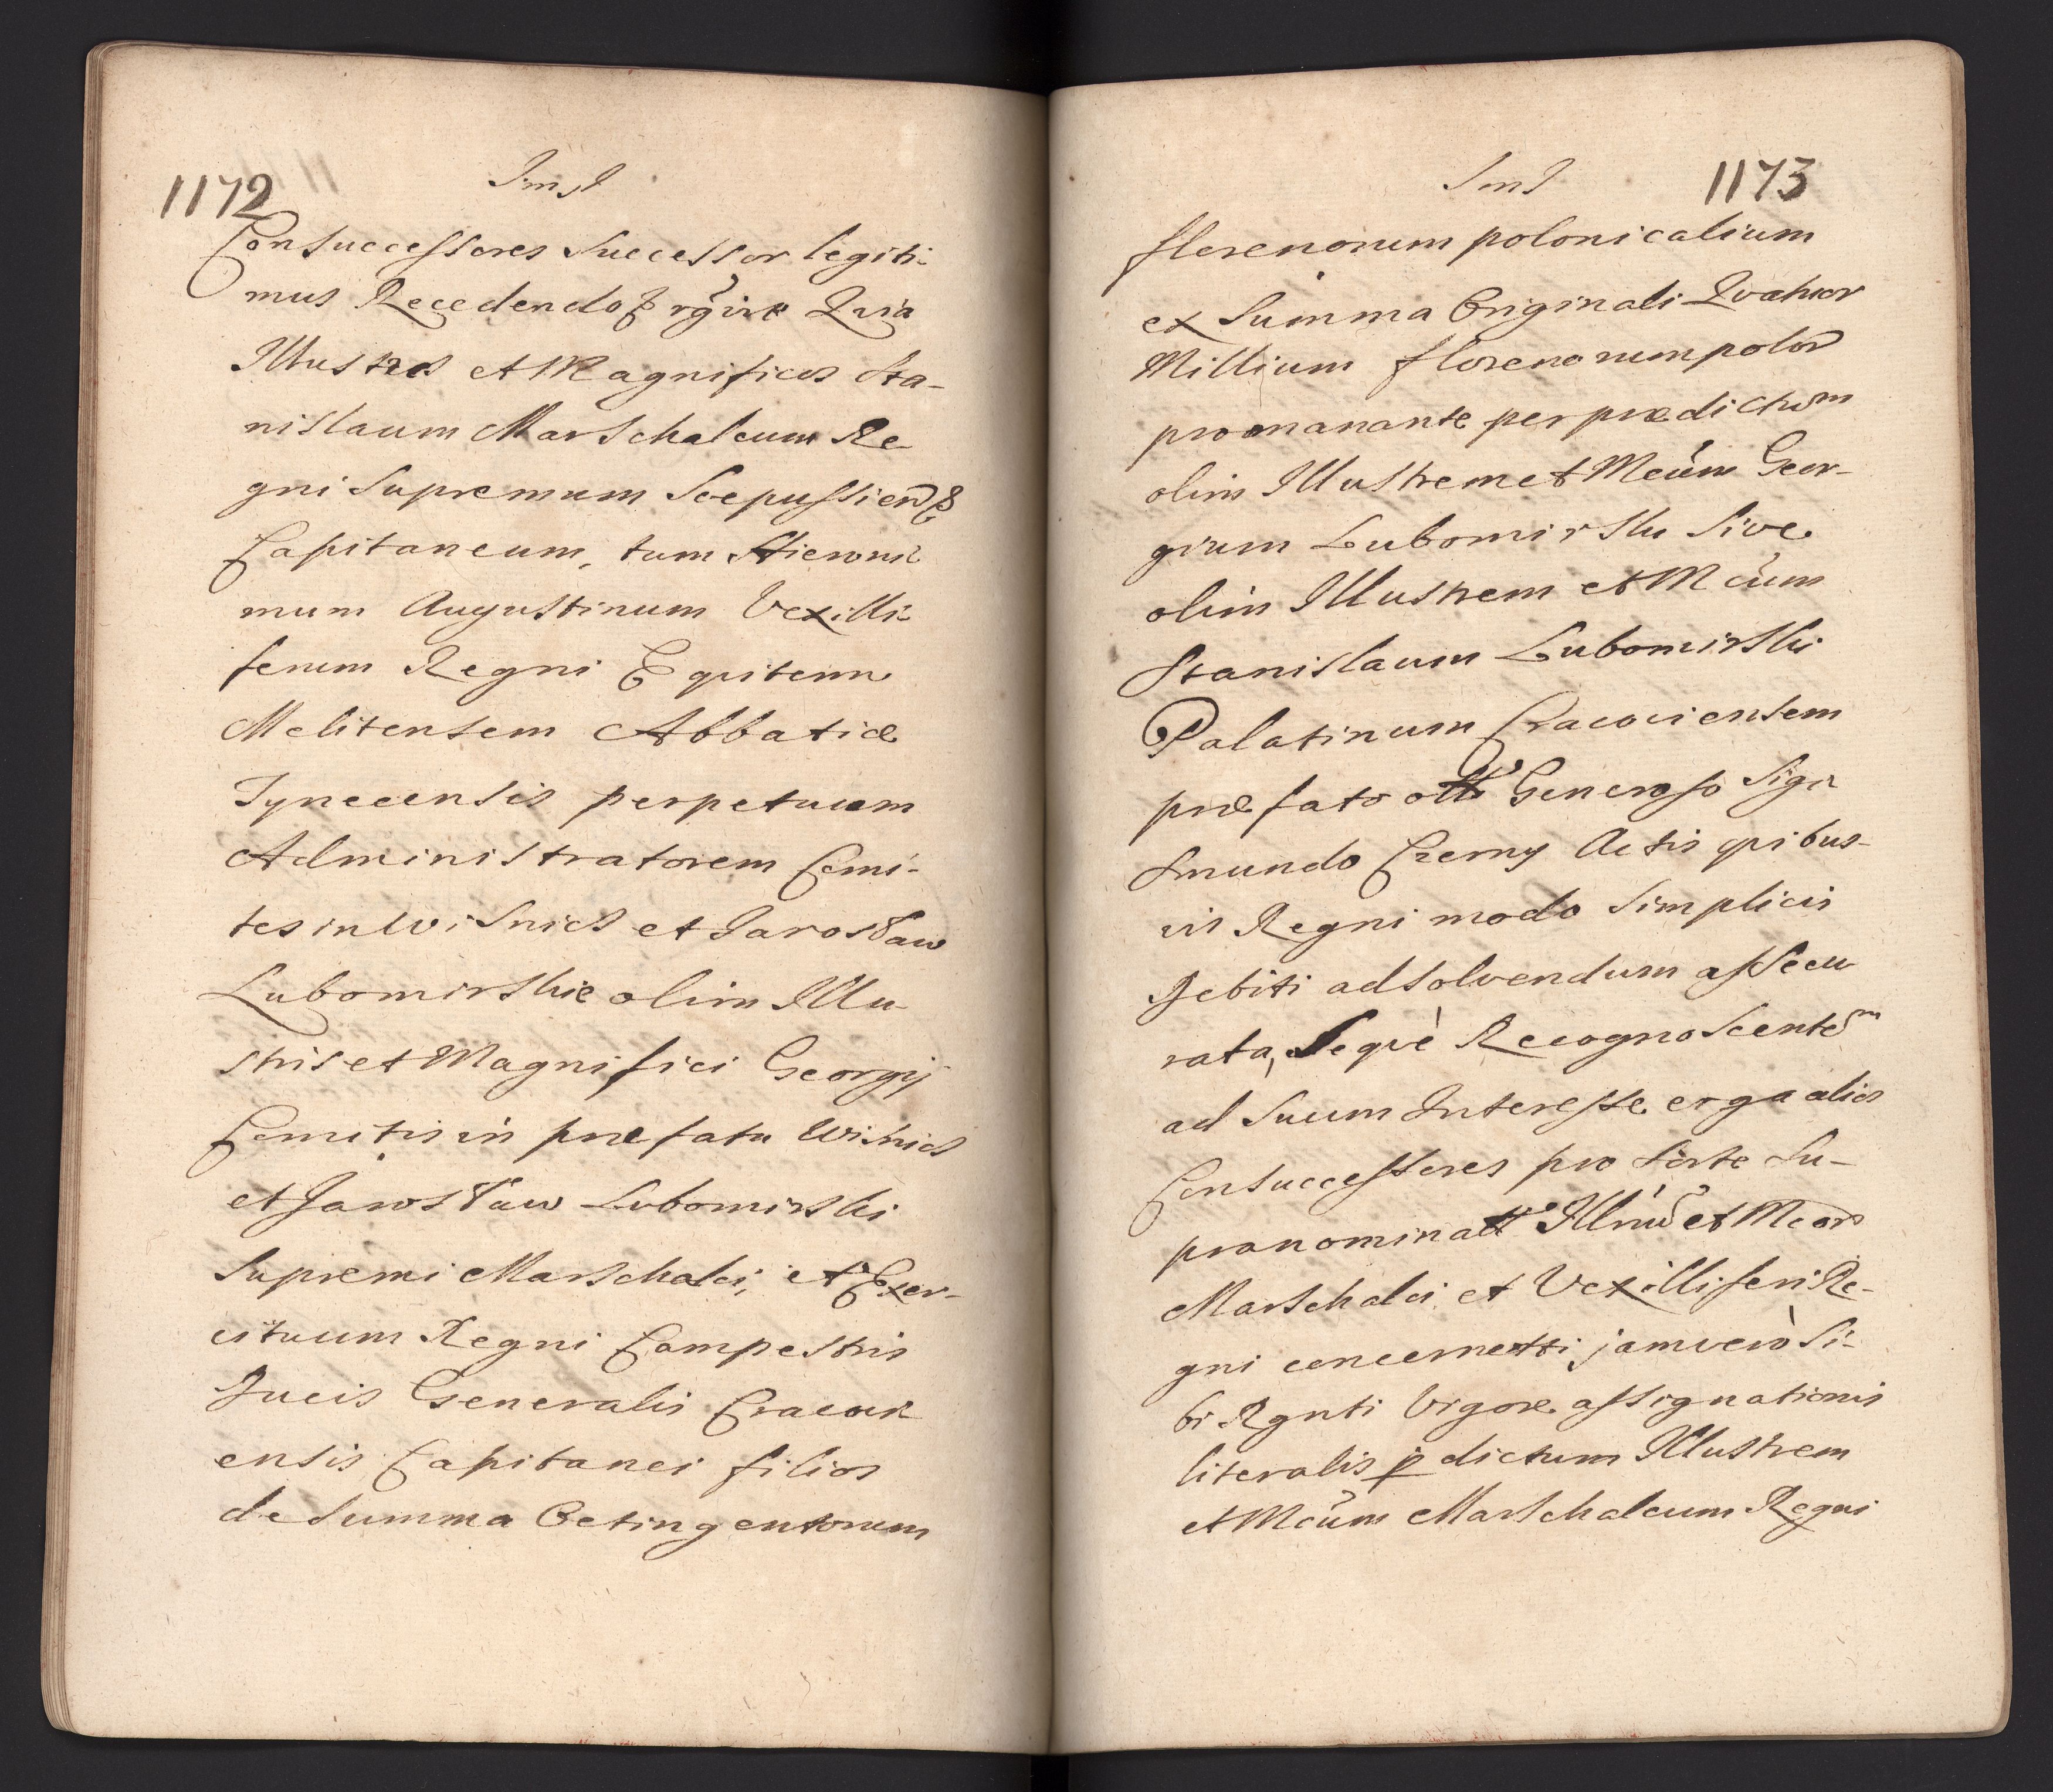 1172
Consuccessores Successor legiti-
mus Recedendo Quia
Illustres et Magnificos Sta-
nislaum Marschalcum Re
gni Supremum Scepussien
Capitaneum, tum Hieroni
mum Augustinum Vexilli
ferum Regni Equitem
Melitensem Abbatiæ
Tynecensis perpetuum
Administratorem Comi-
tes in Wisnicz et Jarosław
Lubomirskie olim Illu
stris et Magnifici Georgij
Comitis in præfata Wisnicz
et Jarosław Lubomirski
Supremi Marschalci, et Exer-
cituum Regni Campestris
Ducis Generalis Cracovi
ensis Capitanei filios
de Summa Octingentorum
1173
florenorum polonicalium
ex Summa Originali Qvatuor
Millium florenorum polon
promanante per prædictum
olim Illustrem et Mcum Geor-
gium Lubomirski Sive
olim Illustrem et Mcum
Stanislaum Lubomirski
Palatinum Cracoviensem
præfato Generoso Sigi
smundo Czerny Actis qvibus-
vis Regni modo Simplicis
Debiti ad solvendum assecu
rata, Seqvè Recognoscentem
ad Suum Interesse erga alios
Consuccessores pro Sorte Su-
pranominatt Illriu et Mcor
Marschalci et Vexilliferi Re-
gni concernetti jam verò Si-
bi Rgnti Vigore assignationis
literalis p dictum Illustrem
et Mcum Marschalcum Regni